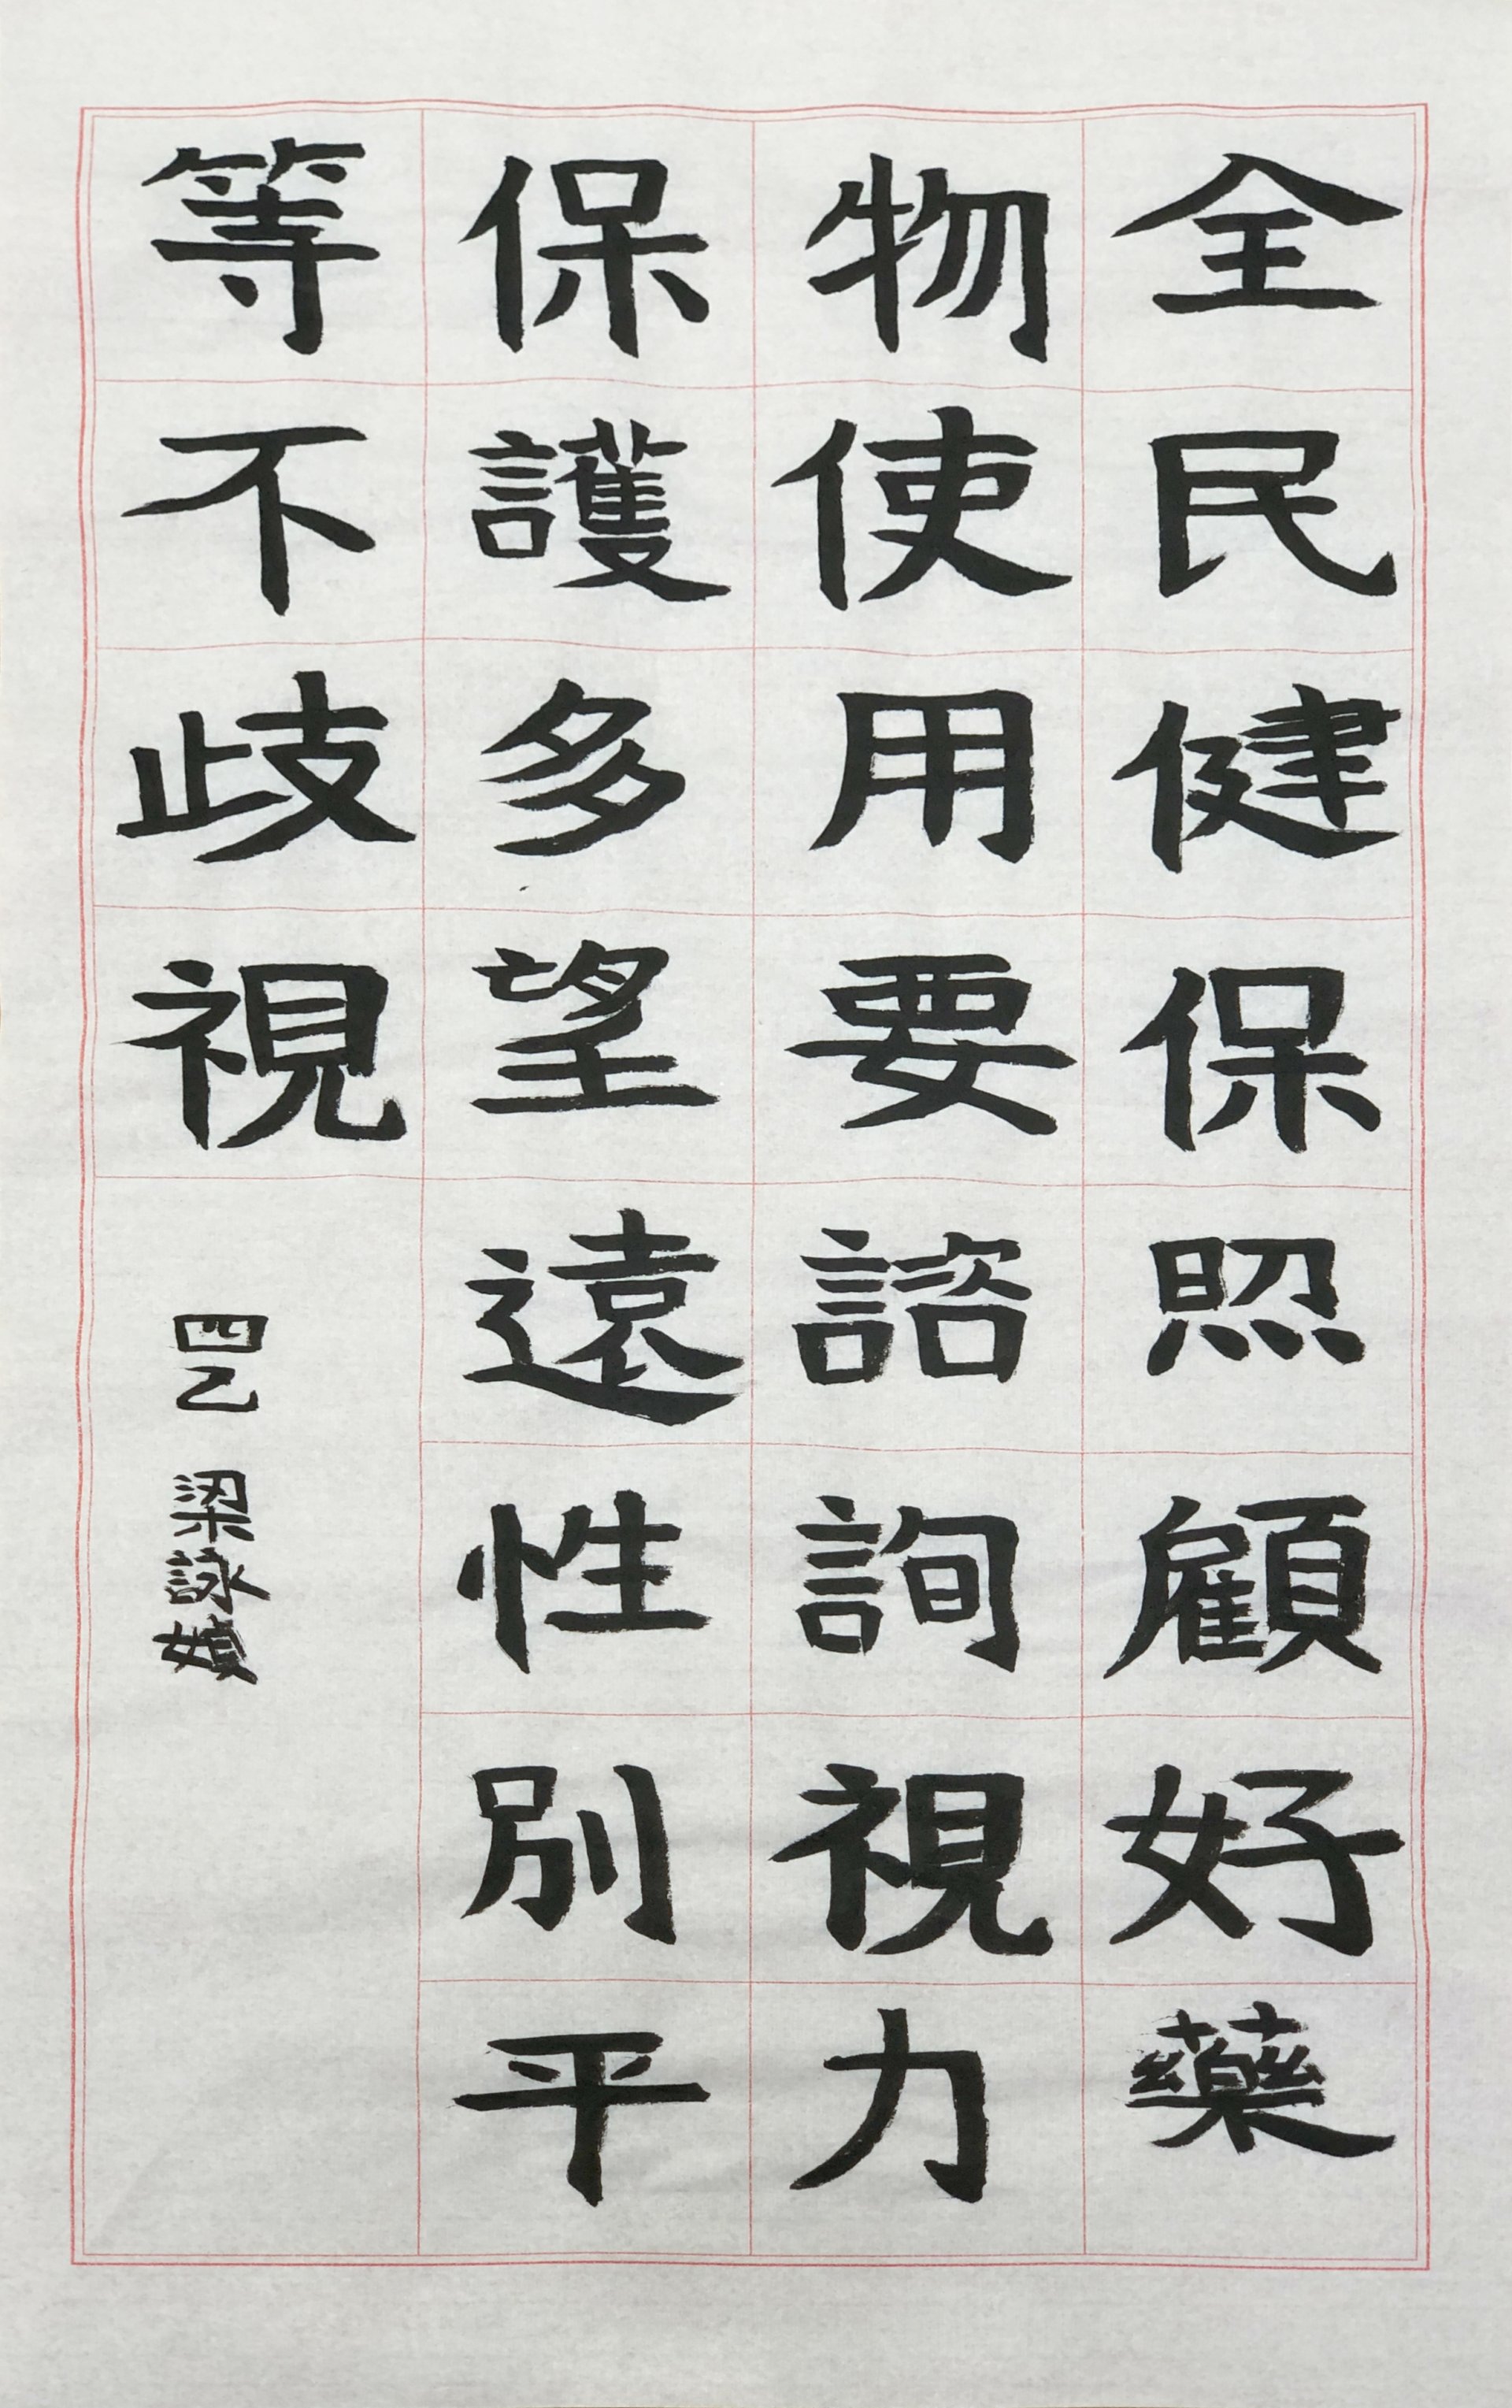 全民健保照顧好藥
物使用要諮詢視力
保護多望遠性別平
等不歧視
四乙 梁詠媜